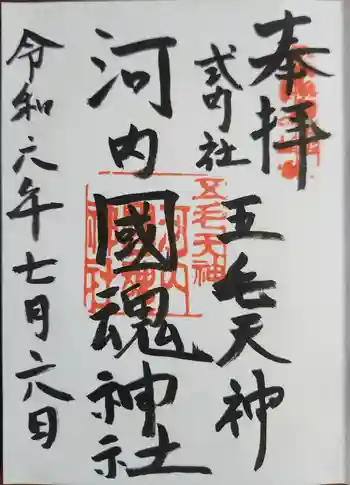 奉拝
式内社 五毛天神
河内國魂神社
令和六年七月六日
五毛天神
河内國魂神社